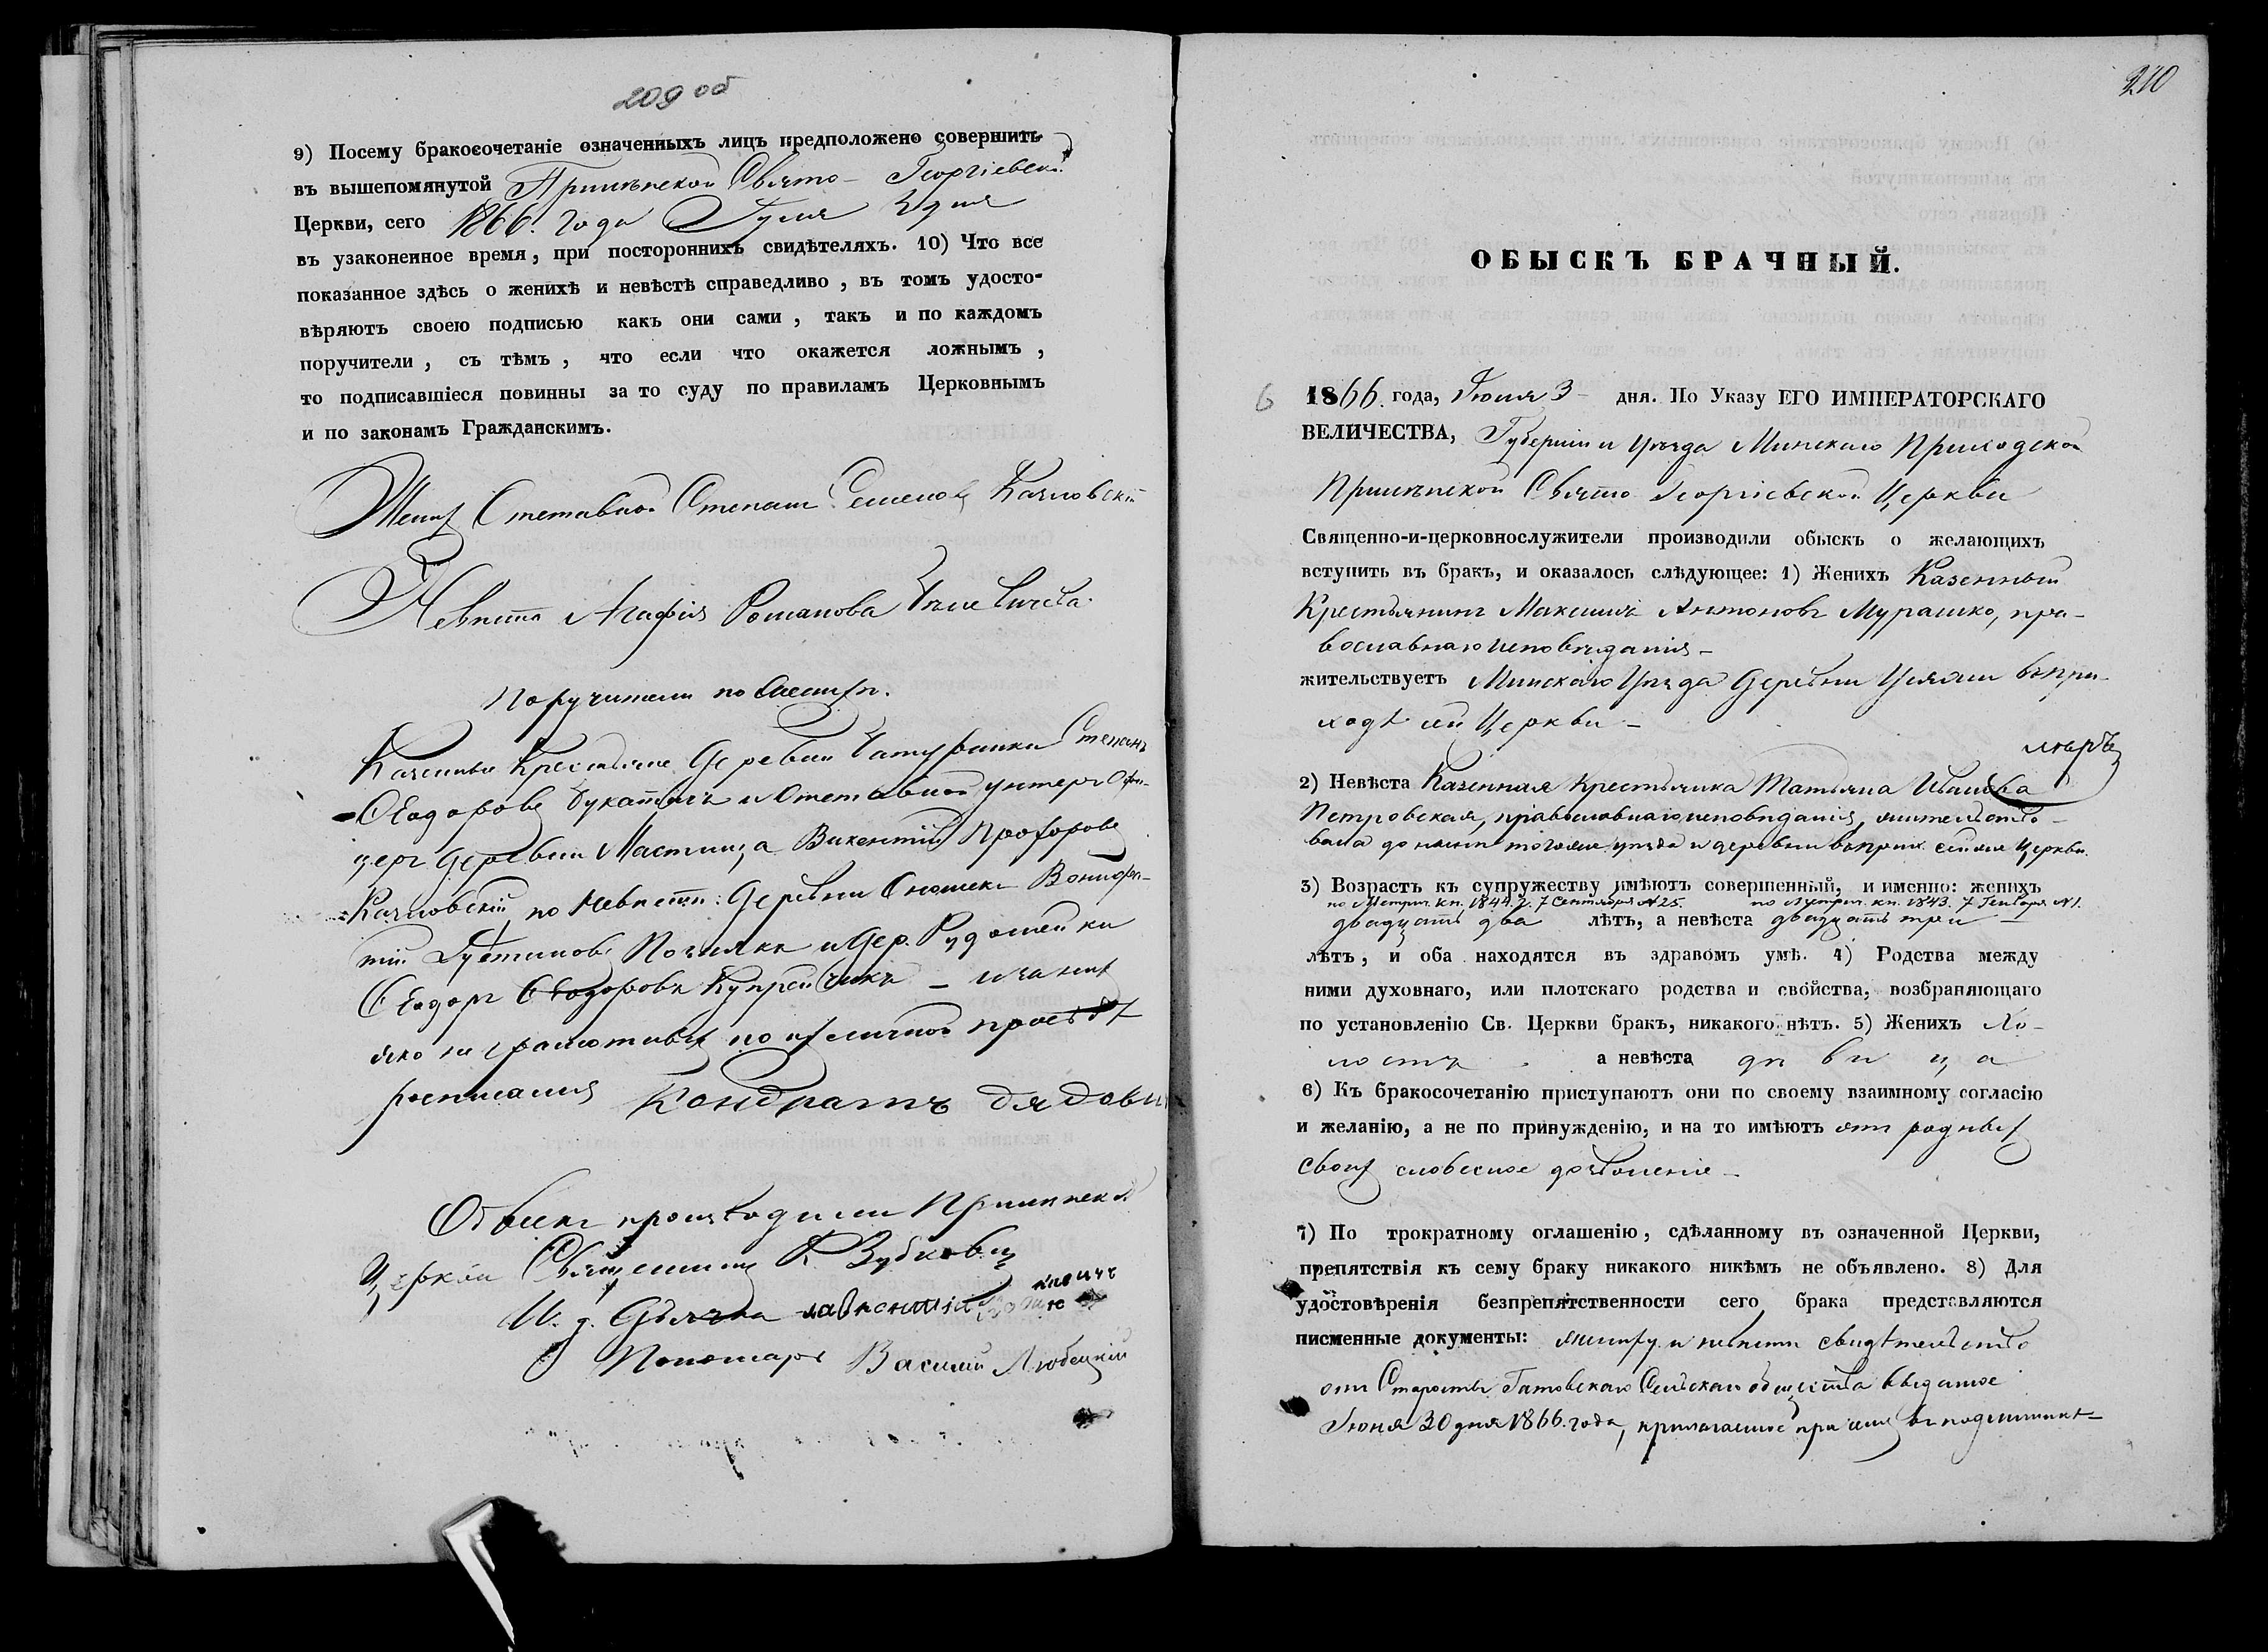 209 об
9) Посему бракосочетаніе означенныхъ лицъ предположено совершить
въ вышепомянутой Прилѣпской Свято-Георгіевской
Церкви, сего 1866. года дня
въ узаконенное время, при постороннихъ свидѣтеляхъ. 10) Что все
показанное здѣсь о женихѣ и невѣстѣ справедливо, въ томъ удосто-
вѣряютъ своею подписью какъ они сами, такъ и по каждомъ
поручители, съ тѣмъ, что если что окажется ложнымъ,
то подписавшіеся повинны за то суду по правиламъ Церковнымъ
и по законамъ Гражданскимъ.
Женихъ Отставной Степанъ Семеновъ Качловскій
Невѣста Агафія Романова
Поручители по Женихѣ.
Казенные Крестьяне Деревни Степанъ
Ѳеодоровъ и Отставной унтеръ Офи-
церъ Деревни Мастица Викентій Прохоровъ
Качловскій, по Невѣстѣ: Деревни Вонифа-
тій и Дер. Рудошейки
Ѳеодоръ Ѳеодоровъ Купрейчикъ – и за нихъ
яко не грамотныхъ по ихъ личной прозьбѣ
росписался Кондратъ Дядови
Обыскъ производили Прилѣпской
Церкви Священникъ К. Зубковичъ
И. д. Дьячка
Пономарь Василій Любецкій
210
ОБЫСКЪ БРАЧНЫЙ.
6 1866. года, Іюля 3 дня. По Указу ЕГО ИМПЕРАТОРСКАГО
ВЕЛИЧЕСТВА, Губерніи и Уѣзда Минскаго Приходской
Прилѣпской Свято Георгіевской Церкви
Священно-и-церковнослужители производили обыскъ о желающихъ
вступить въ бракъ, и оказалось слѣдующее: 1) Женихъ Казенный
Крестьянинъ Максимъ Антоновъ Мурашко, пра-
вославнаго исповѣданія –
жительствуетъ Минскаго Уѣзда Деревни въ при-
ходѣ сей Церкви –
2) Невѣста Казенная Крестьянка Татьяна Иванова
Петровская, православнаго исповѣданія, жительство-
вала до нынѣ тогоже уѣзда и деревни въ прих. сей же Церкви.
3) Возрастъ къ супружеству имѣютъ совершенный, и именно: женихъ
по Метрич. кн. 1844. г. 7 Сентября №25. по Метрич. кн. 1843. 7 Генваря №1.
двадцать два лѣтъ, а невѣста двадцать три –
лѣтъ, и оба находятся въ здравомъ умѣ. 4) Родства между
ними духовнаго, или плотскаго родства и свойства, возбраняющаго
по установленію Св. Церкви бракъ, никакого нѣтъ. 5) Женихъ Хо-
лостъ а невѣста дѣвица
6) Къ бракосочетанію приступаютъ они по своему взаимному согласію
и желанію, а не по принужденію, и на то имѣютъ отъ родныхъ
своихъ словесное дозволеніе –
7) По трократному оглашенію, сдѣланному въ означенной Церкви,
препятствія къ сему браку никакого никѣмъ не объявлено. 8) Для
удостовѣренія безпрепятственности сего брака представляются
писменные документы: жениху и невѣсти свидѣтельство
отъ Старосты Гатовскаго Сельскаго общества выданное
Іюня 30 дня 1866. года, прилагаемое при семъ въ подлинникѣ –